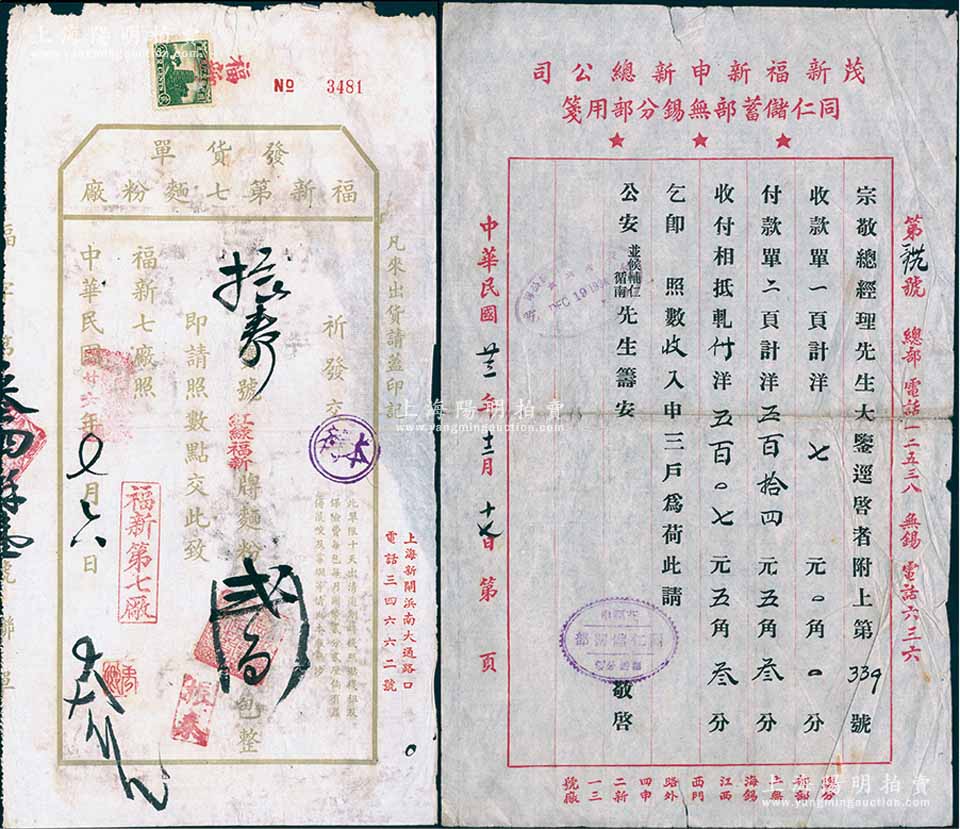 上海陽明拍賣
福新
№ 3481
發貨單
福新第七麵粉廠
凡來出貨請蓋印記
祈發交
號 紅綠福新 牌麵粉 包整
即請照數點交此致
福新七廠照
中華民國廿 年 七月 日
福新第七廠
上海新閘浜南大通路口
電話三四六六二號
上海陽明拍賣
www.yangmingauction.com
茂新福新申新總公司
同仁儲蓄部無錫分部用箋
第 號 總部電話一二五三八 無錫電話六三六
宗敬總經理先生大鑒逕啓者附上第339號
收款單一頁計洋 七 元〇角〇分
付款單二頁計洋五百拾四元五角叁分
收付相抵軋付洋五百〇七元五角叁分
乞卽 照數收入申三戶爲荷此請
公安 並候輔仁循南先生籌安 敬啓
中華民國廿三年十二月十七日第 頁
DEC 19 19
同仁儲蓄部
上海陽明拍賣
www.yangmingauction.com
上海陽明拍賣
www.yangmingauction.com